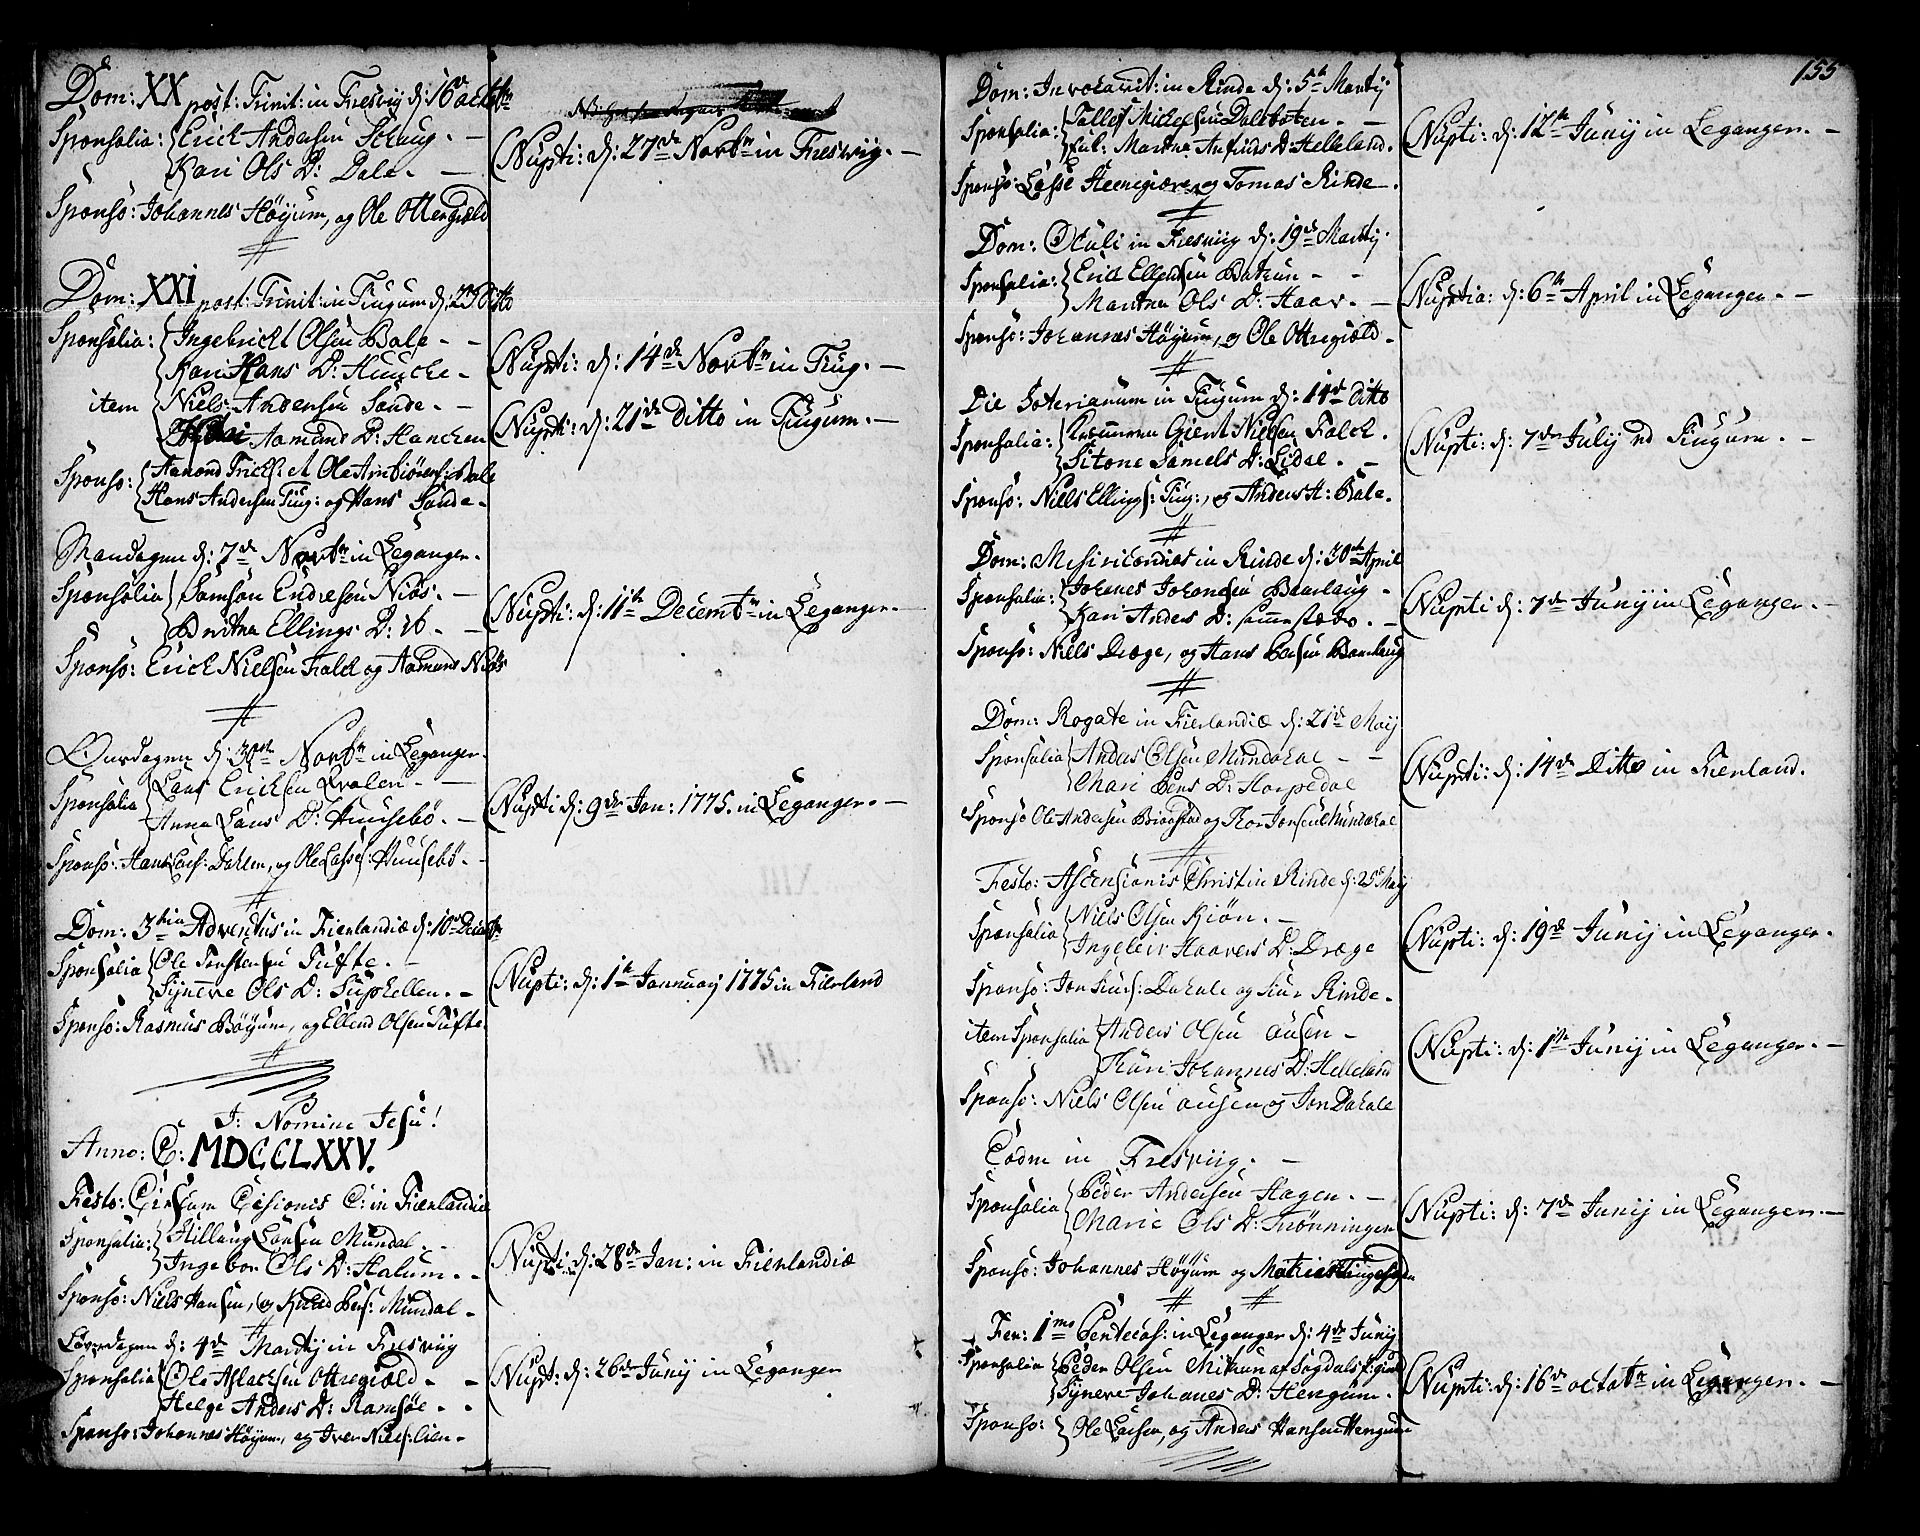 Dom: XX post: Trinit: in Fresvig d: 16 octobr
Sponsalia: Erich Andersen Schaug. -
Kari Ols D: Dale. -
Sponso: Johannes Høyum, og Ole Ottergiæld
(Nupti: d: 27de Novbr in Fresvig. -
Dom: XXI post: Trinit: in Tiugum d: 23 ditto
Sponsalia: Ingebricht Olsen Bale - -
Kari Hans D: Huucke. -
item Niels Andersen Sande. -
Aamunds D: Hanchen
Sponso: Aamond Frichs: et Ole Bale
Hans Andersen Tiug: og Hans Sande. -
(Nupti: d: 14de Novbr in Tiug. -
(Nupti: d: 21de ditto in Tiugum. -
Mandagen d: 7de Novbr in Leganger.
Sponsalia Samson Endresen Niøs. -
Britha Ellings D: ib. -
Sponso: Erich Nielsen Falch og Aamund Niøs
(Nupti: d: 11te Decembr in Leganger. -
Onsdagen d: 30te Novbr in Leganger
Sponsalia Lars Ericksen Qvalen. -
Anna Lars D: Huusebø. -
Sponso: Hans Lars: Dahlen, og Ole Lasses: Huusebø. -
(Nupti d: 9de Jan: 1775. in Leganger. -
Dom: 3tia Adventus in Fierlandiæ d: 10de Decembr
Sponsalia Ole Torstensen Tufte. -
Synneve Ols D: Suphellen. -
Sponso: Rasmus Bøyum, og Ellend Olsen Tufte.
(Nupti: d: 1te Januarij 1775 in Fierland
I: Nomine Jesu!
Anno: C: MDCCLXXV.
Festo: Circum Cisionis C: in Fierlandiæ
Sponsalia: Hillaug Larsen Mundal. -
Ingebor Ols D: Hatum. -
Sponso: Niels Hansen, og Knud Pers: Mundal. -
(Nupti d: 28de Jan: in Fierlandiæ
Løverdagen d: 4de Martij in Fresviig
Sponsalia Ole Aslachsen Ottregiæld. -
Helge Anders D: Ramsøe. -
Sponso: Johannes Høyum, og Iver Niels: Lien. -
(Nupt: d: 26de Junij in Leganger
155
Dom: Invocavit: in Rinde d: 5te Martij
Sponsalia: Tollef Michelsen Dalboten. -
Martha Anfinds D: Helleland.
Sponso: Lasse Heenigiære og Tomas Rinde. -
(Nupti: d: 12te Junij in Leganger. -
Dom: Oculi in Fresviig d: 19de Martij
Sponsalia: Erich Ellendsen Batzun - -
Martha Ols D: Haav. -
Sponso: Johannes Høyum, og Ole Ottregiæld. -
(Nuptia: d: 6te April in Leganger. -
Die Soterianum in Tiugum d: 14de ditto
Sponsalia: Gient Nielsen Falch.
Sitone Samels D: Eidal. -
Sponso: Niels Ellings: Tiug:, og Anders A: Bale.
(Nupti: d: 7de Julij ad Tiugum. -
Dom: Misericordias in Rinde d: 30te April
Sponsalia: Johanes Johansen Baarlaug -
Kari Anders D: -
Sponso: Niels Dræge, og Hans Persen Baarlaug
(Nupti d: 7de Junij in Leganger. -
Dom: Rogate in Fierlandiæ d: 21de Maij
Sponsalia Anders Olsen Mundahal - -
Mari Pers D: Horpedal
Sponso Ole Andersen og Thor Jonsen Mundahal
(Nupti: d: 14de Ditto in Fierland.
Festo: Ascensionis Christi in Rinde d: 25 Maij
Sponsalia Niels Olsen Kiøn. -
Ingeleiv Haavers D: Dræge
Sponso: Jon Siurs: Dahale og Siur Rinde. -
(Nupti: d: 19de Junij in Leganger.
item Sponsalia Anders Olsen ousen -
Kari Johannes D: Helleland
Sponso: Niels Olsen ousen og Jon Dahale
(Nupti: d: 1te Junij in Leganger. -
Eodm in Fresviig. -
Sponsalia Peder Andersen Hagen. -
Marie Ols D: Trønningen
Sponso: Johannes Høyum og Mathias
(Nupti: d: 7de Junij in Leganger. -
Fer: 1mo Pentecos: in Leganger d: 4de Junij
Sponsalia Peder Olsen af Sogdals
Synneve Johanes D: Hengum. -
Sponso: Ole Larsen, og Anders Hansen Hengum
(Nupti: d: 16de octobr in Leganger. -